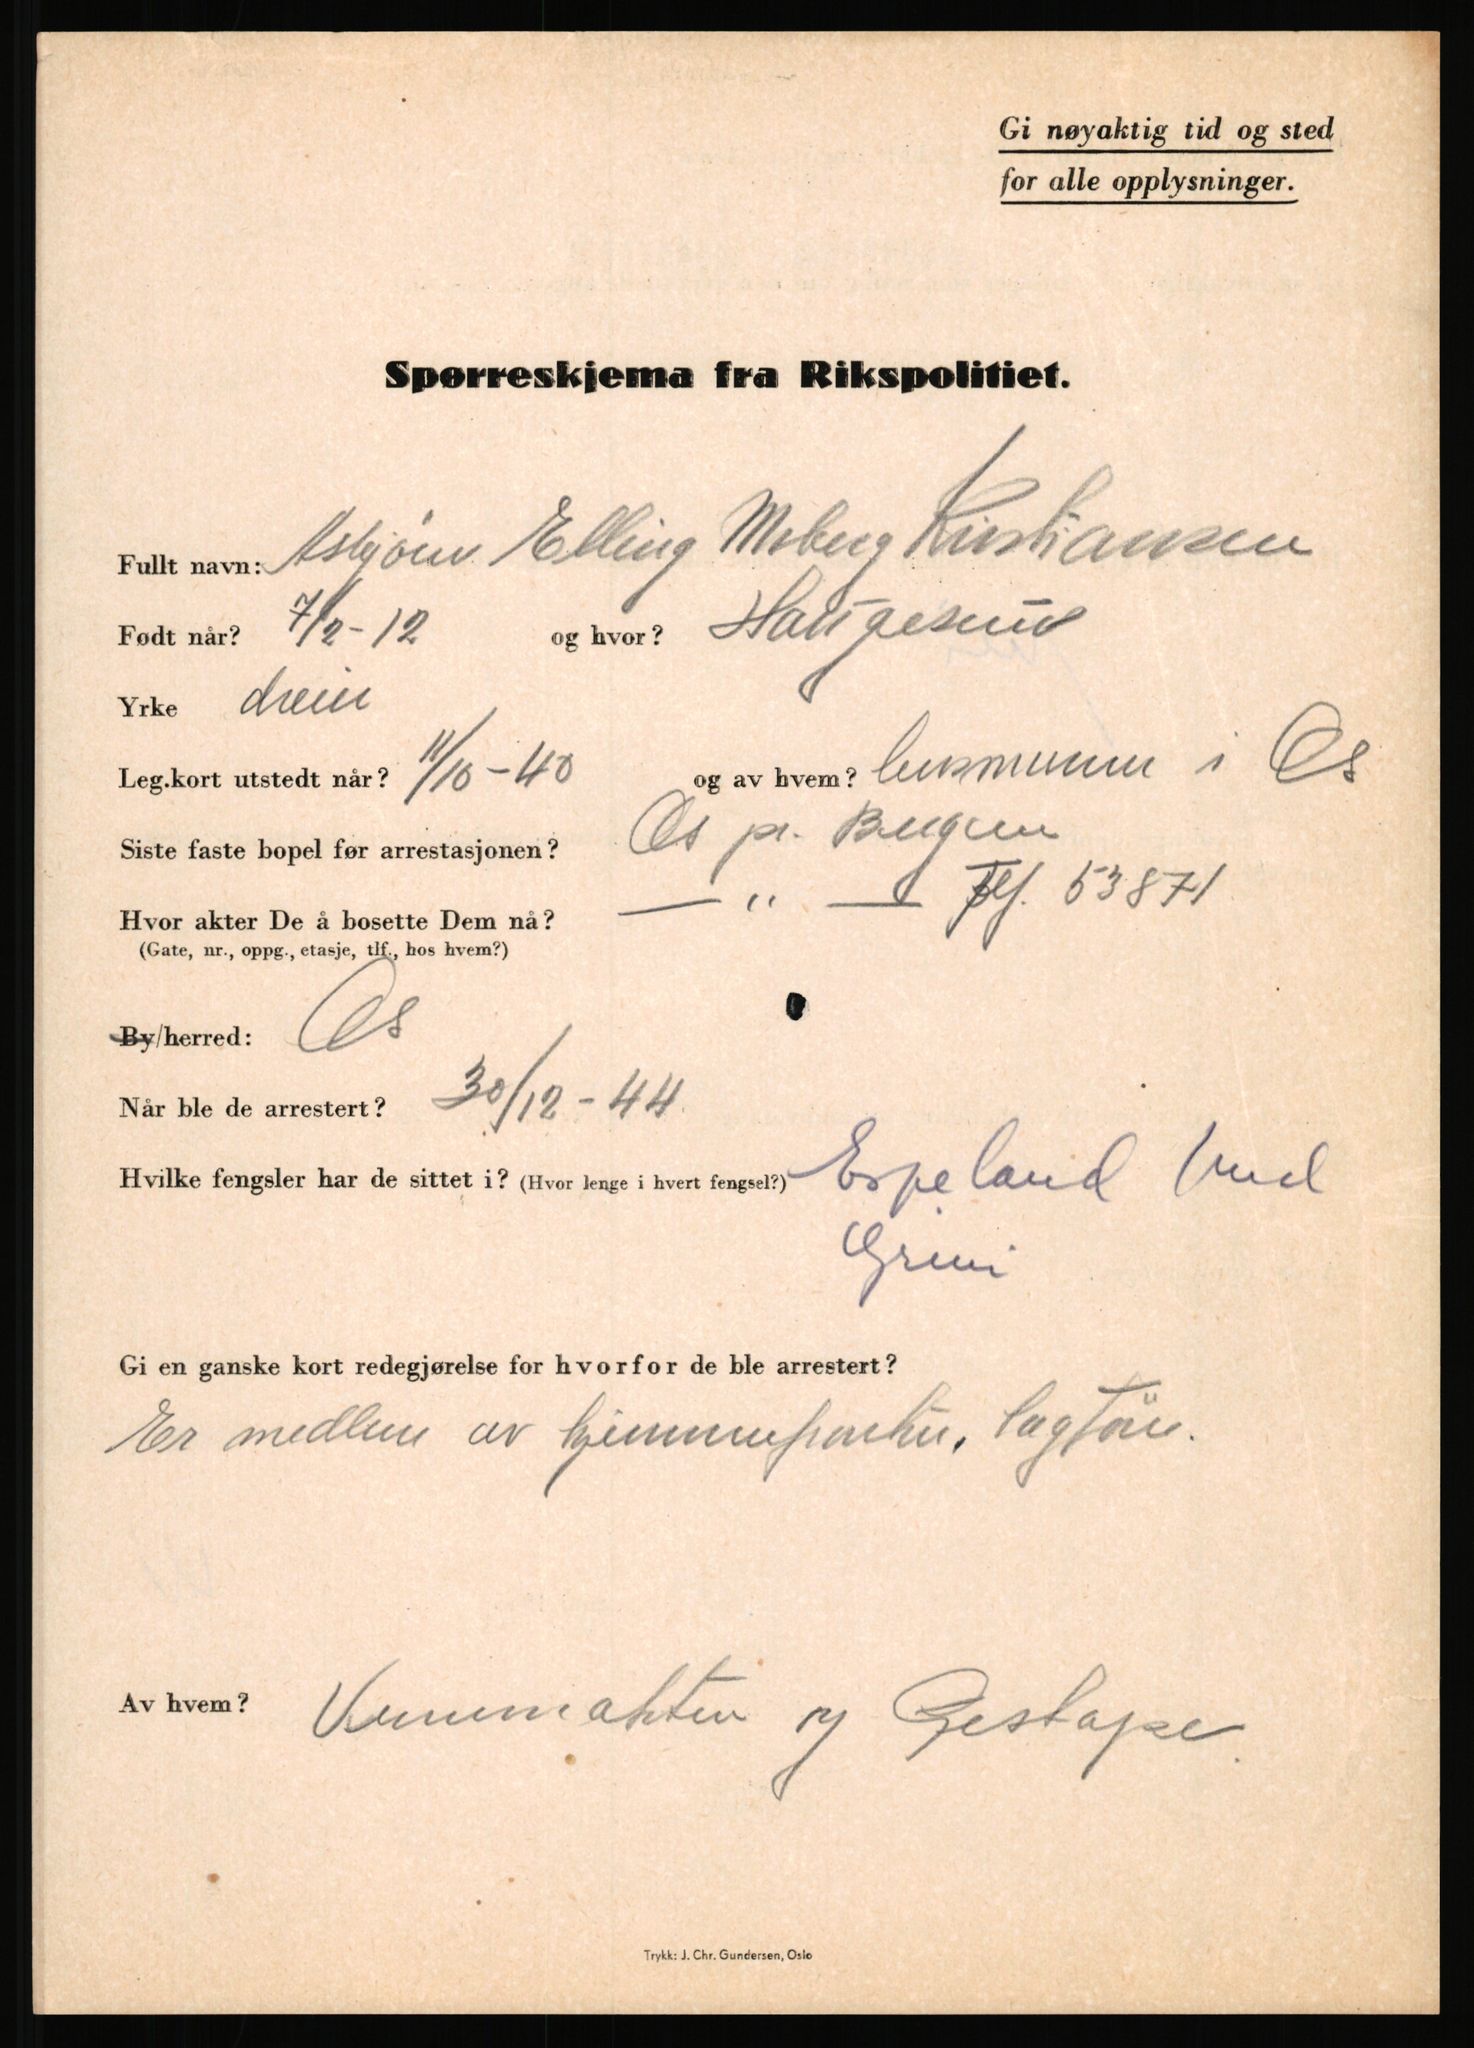 Gi nøyaktig tid og sted
for alle opplysninger.
Spørreskjema fra Rikspolitiet.
Fullt navn: Asbjørn Elling Moberg Kristiansen
Født når? 7/2-12 og hvor? Haugesund
Yrke dreier
Leg.kort utstedt når? 11/10-40 og av hvem? lensmannen i Os
Siste faste bopel før arrestasjonen? Os pr. Bergen
Hvor akter De å bosette Dem nå? — „ — Tlf. 53871
(Gate, nr., oppg., etasje, tlf., hos hvem?)
By/herred: Os
Når ble de arrestert? 30/12-44
Hvilke fengsler har de sittet i? (Hvor lenge i hvert fengsel?) Espeland
Grini
Gi en ganske kort redegjørelse for hvorfor de ble arrestert?
Er medlem av hjemmefronten, lagfører.
Av hvem? og Gestapo.
Trykk: J. Chr. Gundersen, Oslo